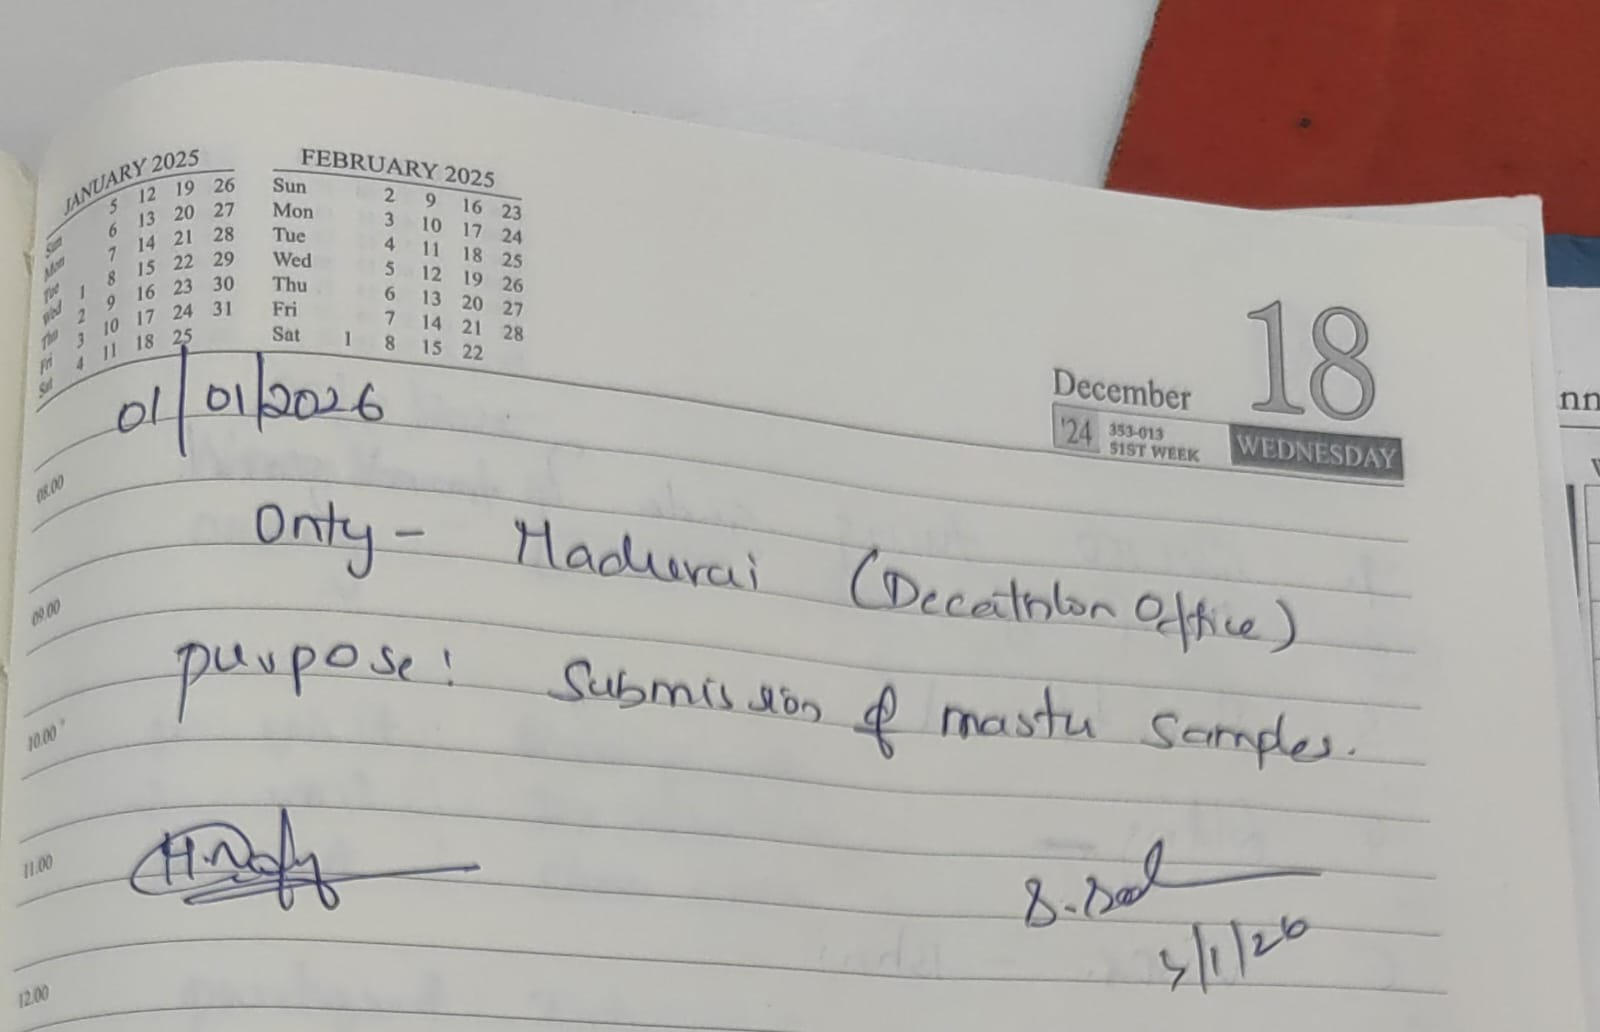 JANUARY 2025
Sun 5 12 19 26
Mon 6 13 20 27
Tue 7 14 21 28
Wed 1 8 15 22 29
Thu 2 9 16 23 30
Fri 3 10 17 24 31
Sat 4 11 18 25
FEBRUARY 2025
Sun 2 9 16 23
Mon 3 10 17 24
Tue 4 11 18 25
Wed 5 12 19 26
Thu 6 13 20 27
Fri 7 14 21 28
Sat 1 8 15 22
December 18
'24 353-013
51ST WEEK
WEDNESDAY
01/01/2026
08.00
Madurai (Decathlon Office)
09.00
purpose: Submission of master samples.
10.00
11.00
/1/26
12.00
nn